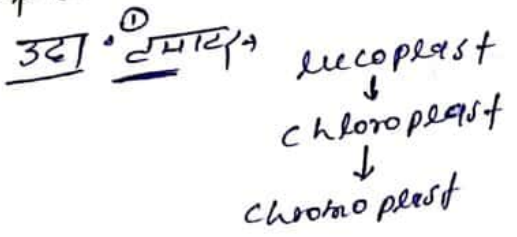 उदा. ① टमाटर → leucoplast
↓
chloroplast
↓
chromoplast